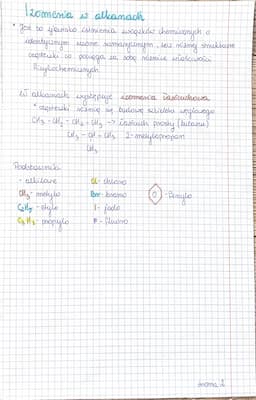 Izomeria w alkanach
* Jest to zjawisko istnienia związków chemicznych o
identycznym wzorze sumarycznym, lecz różnej strukturze
cząsteczki co pociąga za sobą różnice właściwości
fizykochemicznych.
W alkanach występuje izomeria łańcuchowa
* cząsteczki różnią się budową szkieletu węglowego
CH3 - CH2 - CH2 - CH3 -> łańcuch prosty (butan)
CH3 - CH - CH3 2-metylopropan
CH3
Podstawniki
- alkilowe Cl - chloro
CH3 - metylo Br - bromo - fenylo
C2H5 - etylo I - jodo
C3H7 - propylo F - fluoro
strona 2